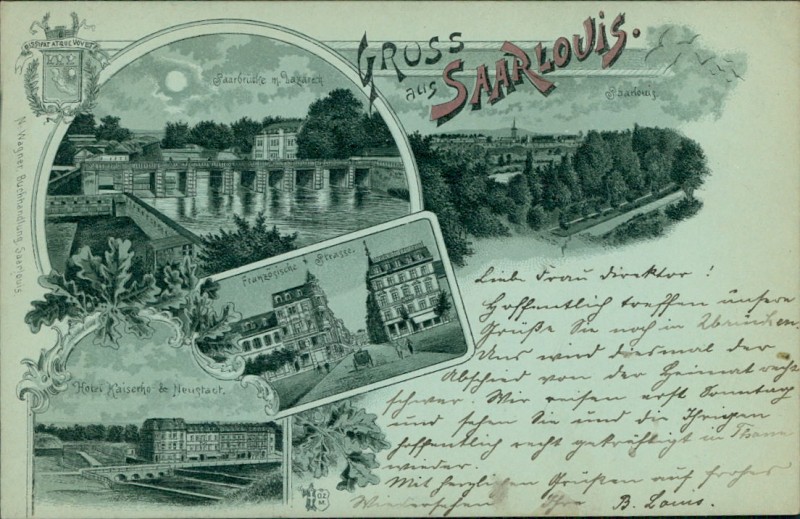 GRUSS
aus SAARLOUIS.
DISSIPAT ATQUE VOVET
Saarbrücke m. Lazaret
Saarlouis
N. Wagner, Buchhandlung, Saarlouis
Französische Strasse.
Hotel Kaiserho & Neustadt.
Liebe Frau Direktor!
Hoffentlich treffen unsere
Grüße Sie noch in
Uns wird diesmal der
Abschied von der Heimat recht
schwer. Wir reisen erst Sonntag
und sehen Sie und die Ihrigen
hoffentlich recht gekräftigt in Thann
wieder.
Mit herzlichen Grüßen auf frohes
Wiedersehen Ihre B. Louis.